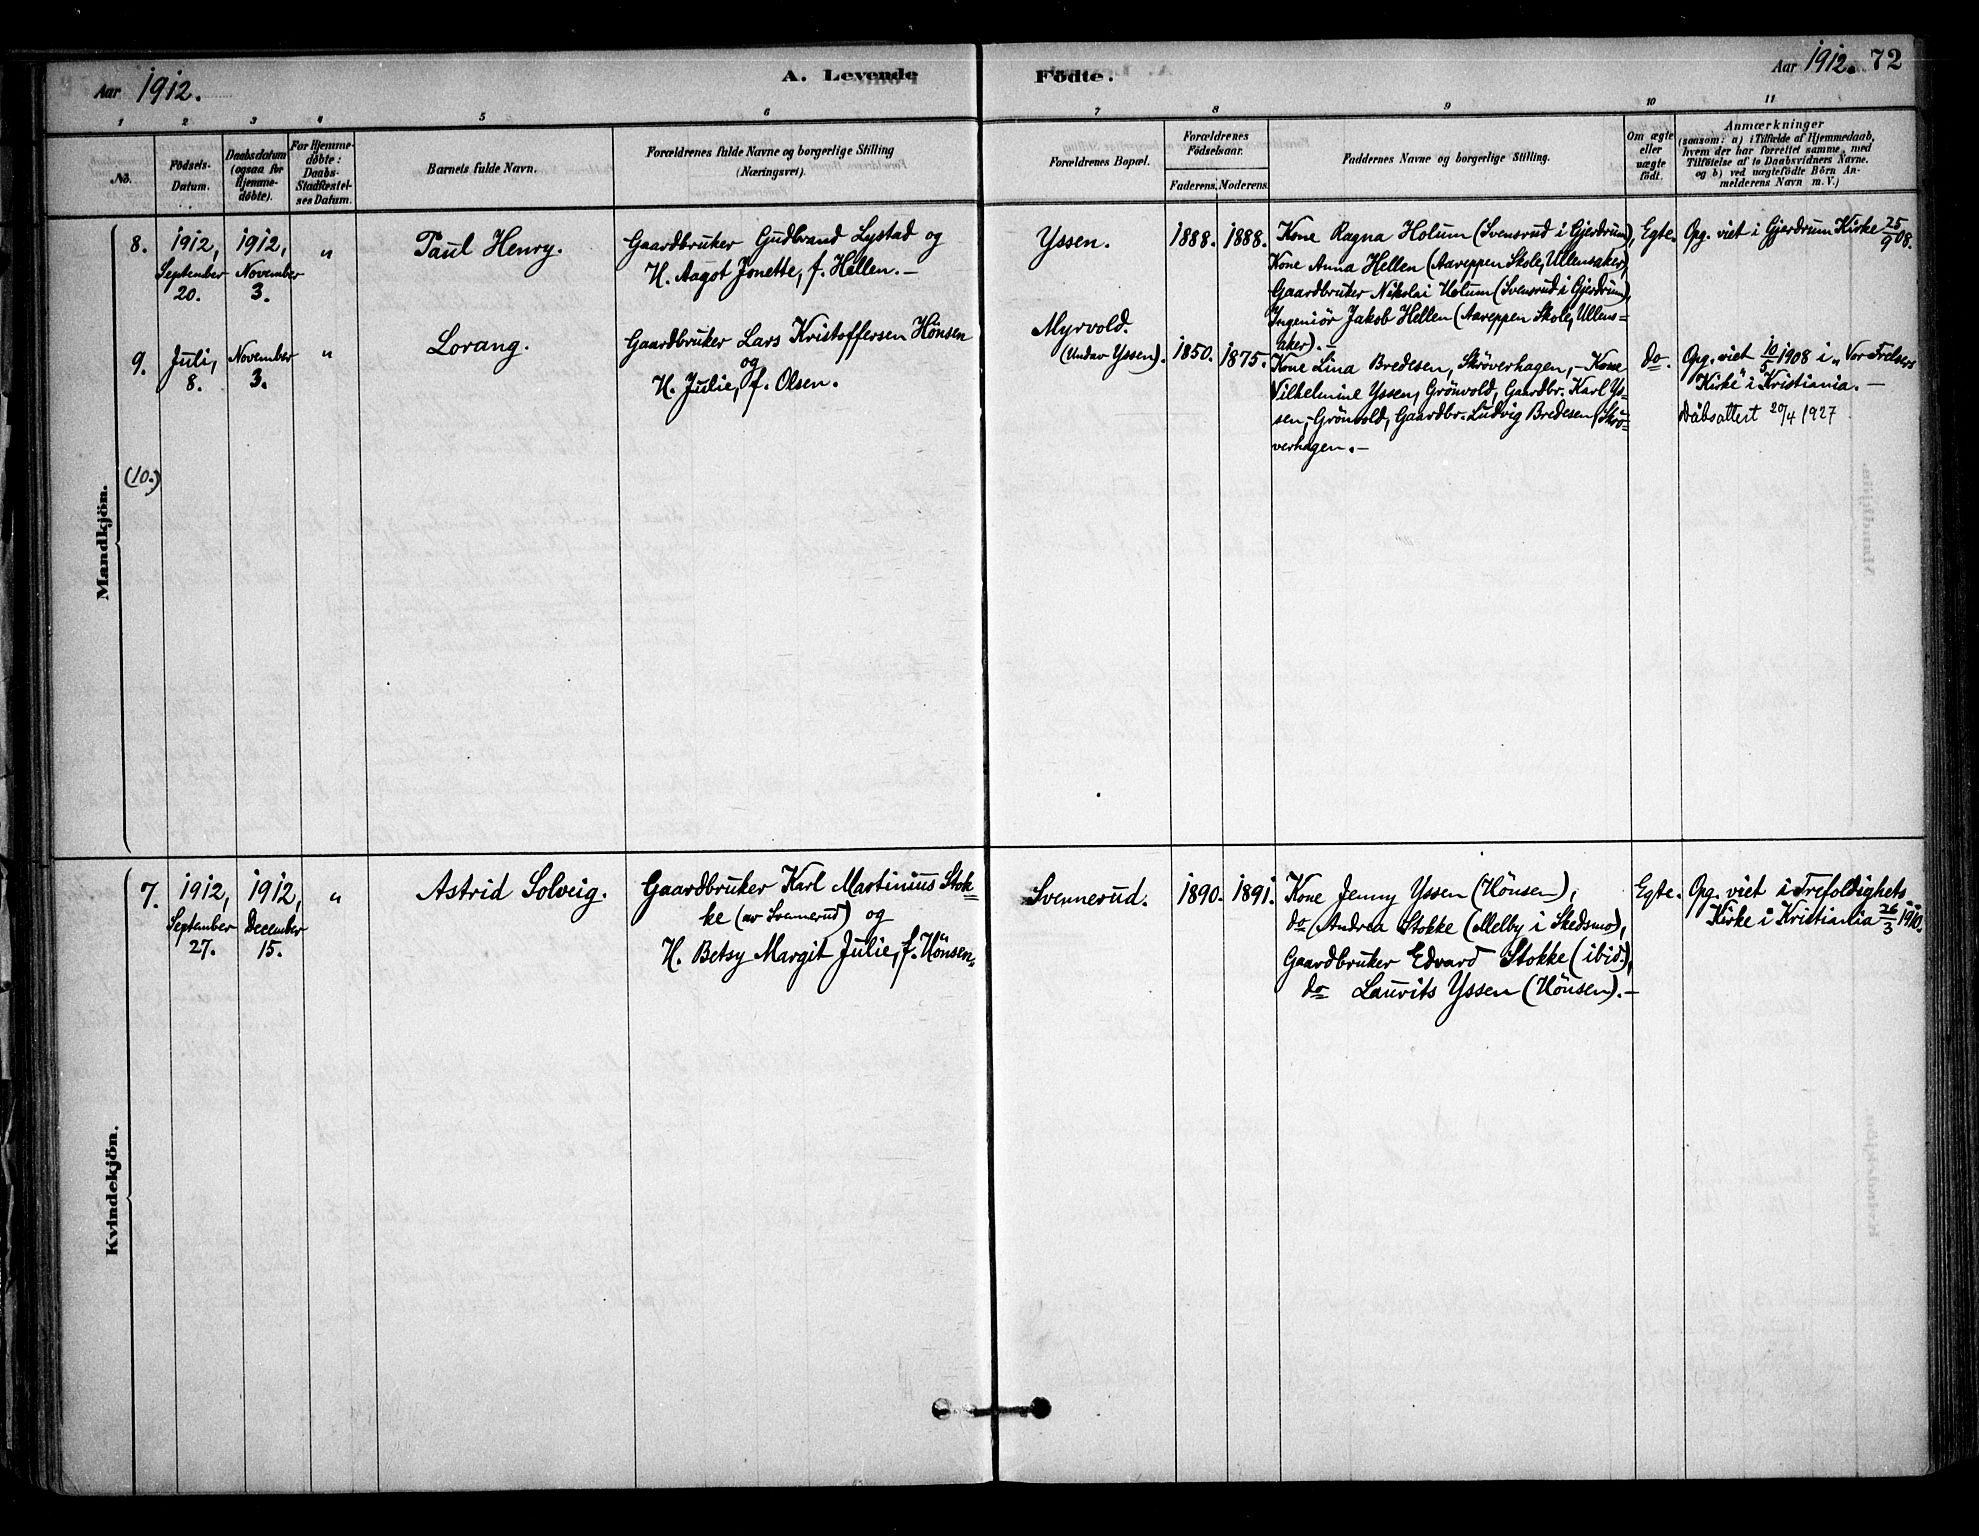 Aar 1912.
A. Levende
Födte.
Aar 1912. 72
1 2 3 4 5 6 7 8 9 10 11
No.
Födsels-
Datum.
Daabsdatum
(ogsaa for
Hjemme-
döbte).
For Hjemme-
döbte:
Daabs-
Stadfæstel-
ses Datum.
Barnets fulde Navn.
Forældrenes fulde Navne og borgerlige Stilling
(Næringsvei).
Forældrenes Bopæl.
Forældrenes
Födselsaar.
Faderens. Moderens.
Faddernes Navne og borgerlige Stilling.
Om ægte
eller
uægte
födt.
Anmærkninger
(saasom: a) i Tilfælde af Hjemmedaab,
hvem der har forrettet samme, med
Tilföielse af to Daabsvidners Navne.
og b) ved uægtefödte Börn An-
melderens Navn m. V.)
Mandkjön.
8.
1912,
September
20.
1912,
November
3.
"
Paul Henry.
Gaardbruker Gudbrand Lystad og
H. Aagot Jonette, f. Hellen. —
Yssen.
1888.
1888.
Kone Ragna Holum (Svensrud i Gjerdrum),
Kone Anna Hellen (Aareppen Skole, Ullensaker),
Gaardbruker Nikolai Holum (Svensrud i Gjerdrum),
Ingeniör Jakob Hellen (Aareppen Skole, Ullens=
aker). —
Egte.
Opg. viet i Gjerdrum Kirke 25/9 08.
9.
Juli,
8.
November
3.
"
Lorang.
Gaardbruker Lars Kristoffersen Hönsen
og
H. Julie, f. Olsen.
Myrvold.
(Undav Yssen).
1850.
1875.
Kone Lina Bredesen, Skröverhagen, — Kone
Vilhelmine Yssen, Grönvold, Gaardbr. Karl Ys-
sen, Grönvold, Gaardbr. Ludvig Bredesen (Skrö-
verhagen. —
do.
Opg. viet 10/5 1908 i "Vor Frelsers
Kirke" i Kristiania. —
Dåbsattest 20/4 1927
(10.)
Kvindekjön.
7.
1912,
September
27.
1912,
December
15.
"
Astrid Solveig.
Gaardbruker Karl Martinius Stok=
ke (av Svennerud) og
H. Betsy Margit Julie, f. Hönsen.
Svennerud.
1890.
1891.
Kone Jenny Yssen (Hönsen),
do (Andrea Stokke (Melby i Skedsmo),
Gaardbruker Edvard Stokke (ibid.),
do Laurits Yssen (Hönsen). —
Egte.
Opg. viet i Trefoldighets-
Kirke i Kristiania 26/3 1910.